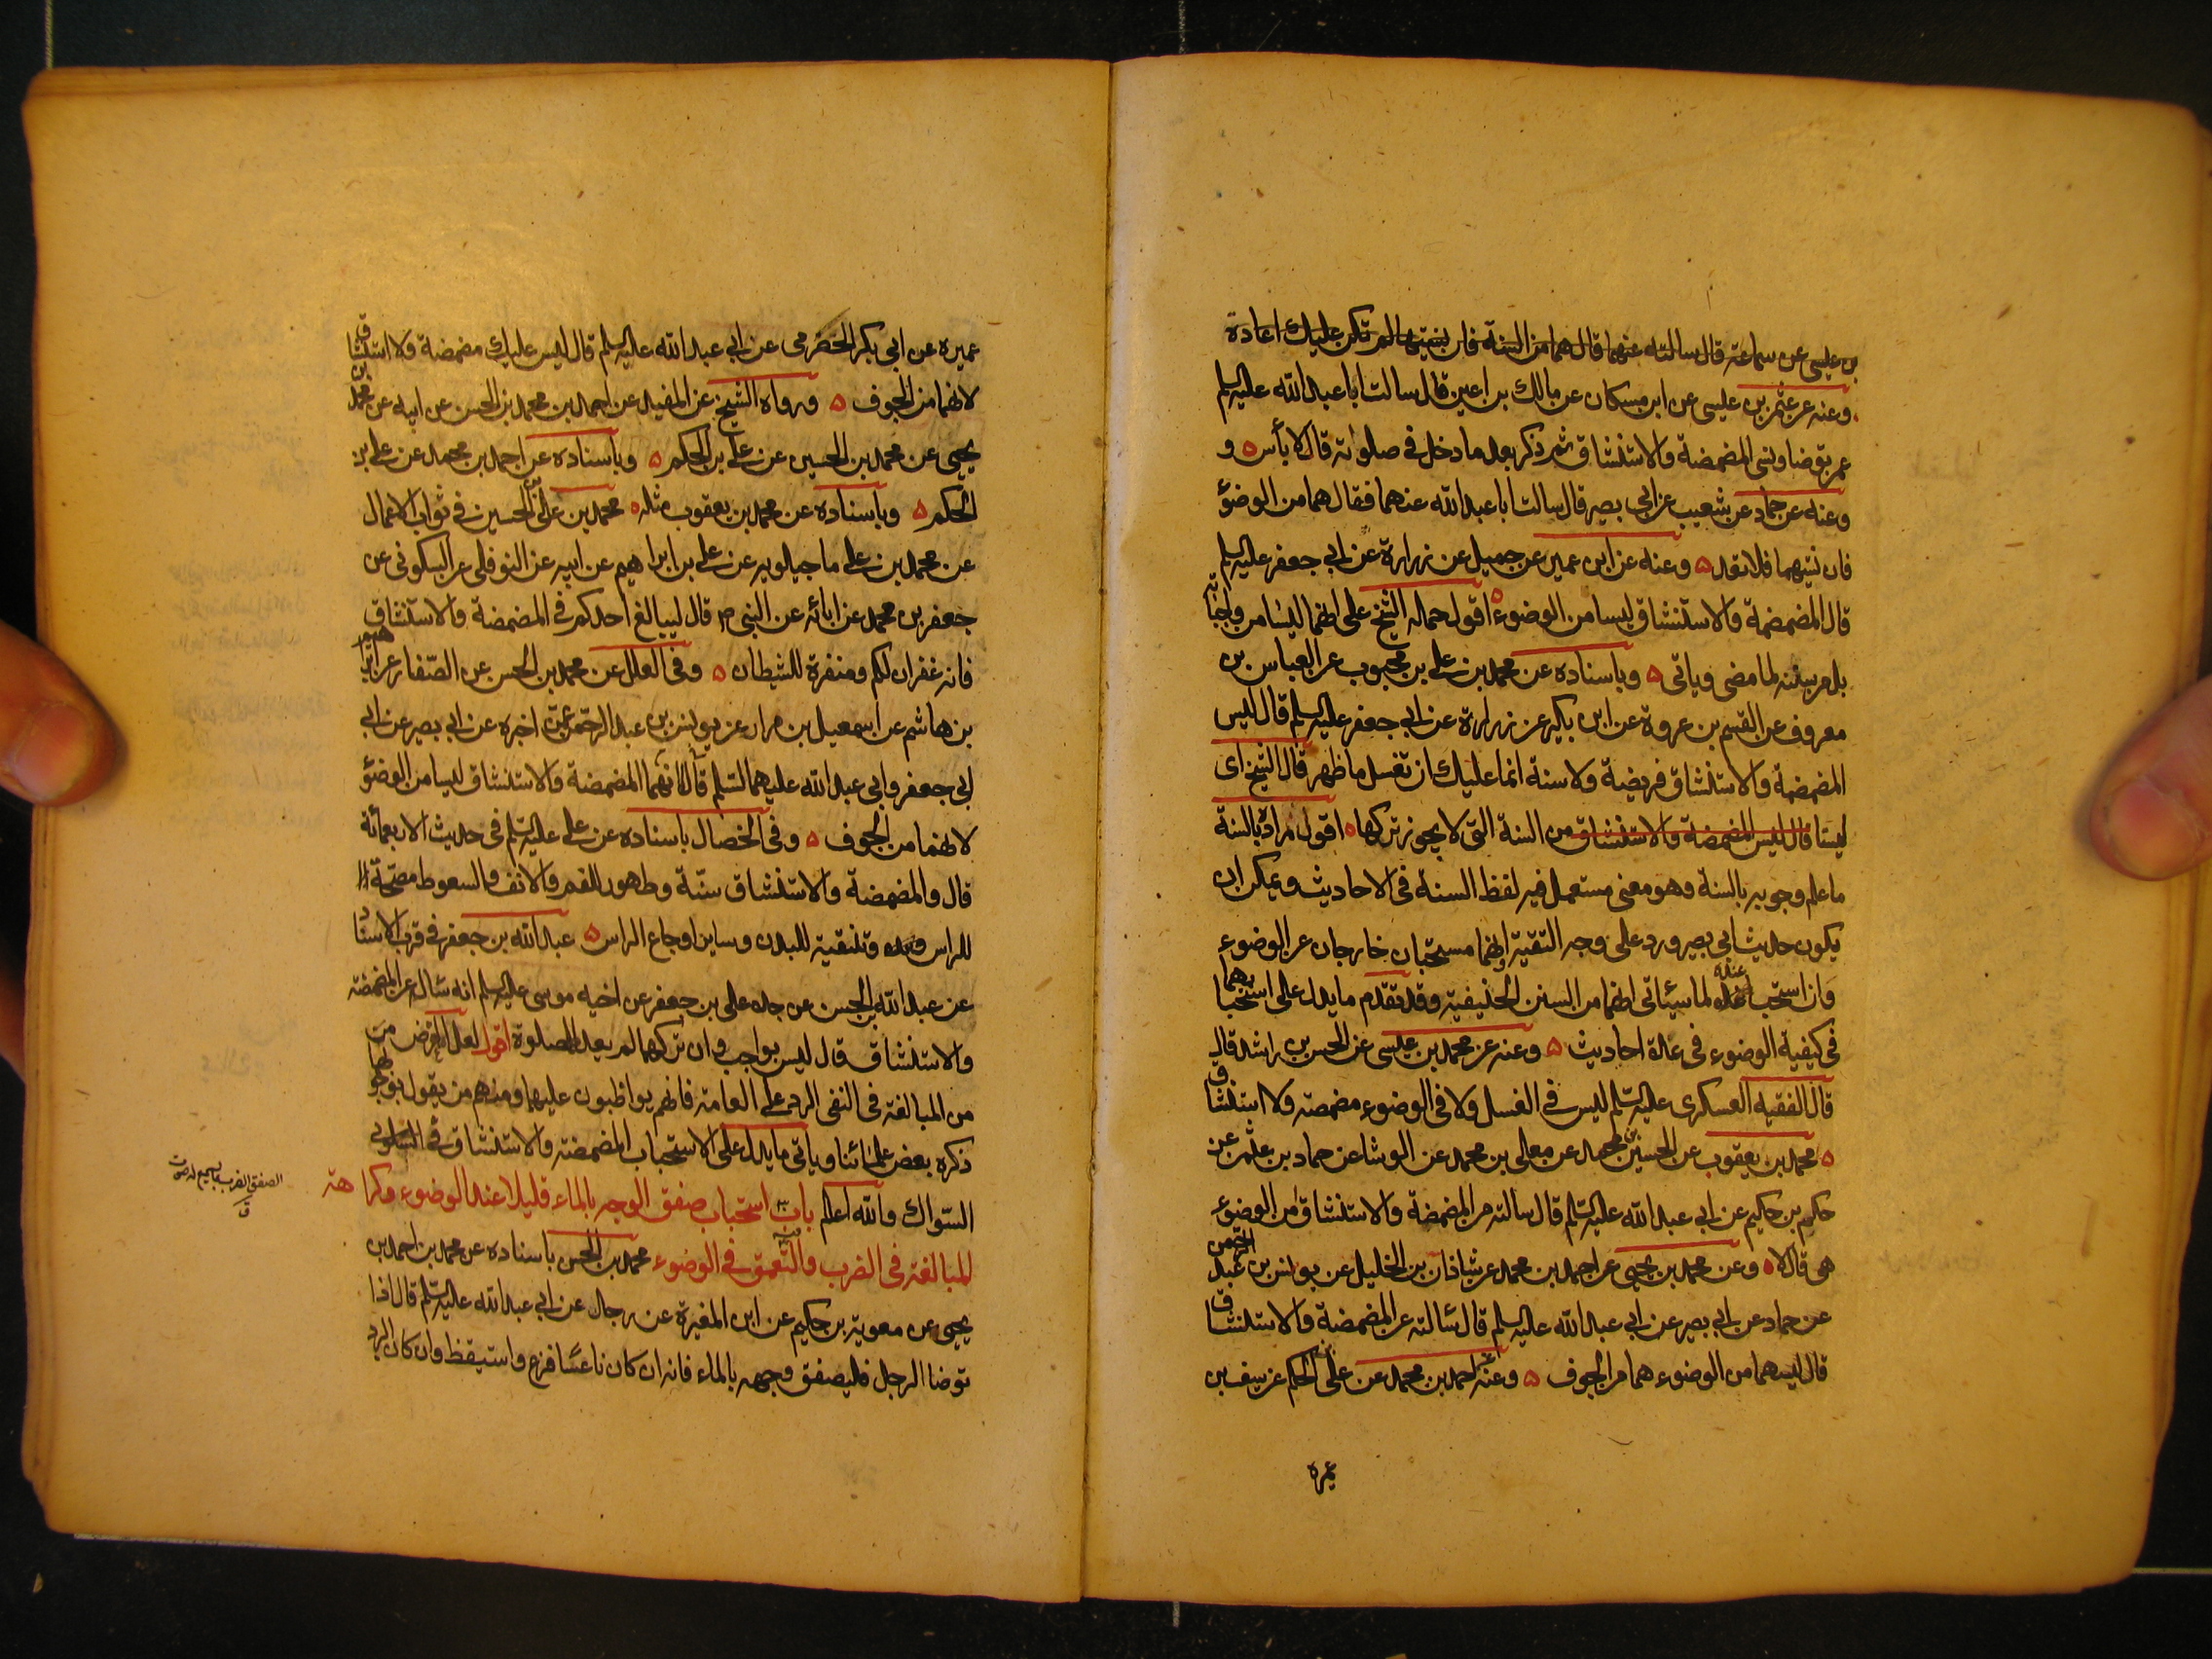 بن عيسى عن سماعة قال سالته عنهما قال هما من السنة فان نسيتهما لم تكن عليك اعادة
وعنه عن عثمن بن عيسى عن ابن مسكان عن مالك بن اعين قال سالت ابا عبد الله عليه السلم
عمن توضا ونسى المضمضة والاستنشاق ثم ذكر بعد ما دخل في صلوته قال لا بأس ه و
وعنه عن حماد عن شعيب عن ابي بصير قال سالت ابا عبد الله عنهما فقال هما من الوضوء
فان نسيتهما فلا تعد ه وعنه عن ابن عمير عن جميل عن زرارة عن ابي جعفر عليه السلم
قال المضمضة والاستنشاق ليسا من الوضوء ه اقول حمله الشيخ على انهما ليسا من واجباته
بل من سننه لما مضى وياتى ه وباسناده عن محمد بن علي بن محبوب عن العباس بن
معروف عن القسم بن عروة عن ابن بكير عن زرارة عن ابي جعفر عليه السلم قال ليس
المضمضة والاستنشاق فريضة ولا سنة انما عليك ان تغسل ما ظهر قال الشيخ اى
ليسا قال ليس المضمضة والاستنشاق من السنة التى لا يجوز تركها ه اقول مراده بالسنة
ما علم وجوبه بالسنة وهو معنى مستعمل فيه لفظ السنة فى الاحاديث ويمكن ان
يكون حديث ابي بصير ورد على وجه التقية او انهما مستحبان خارجان عن الوضوء
وان استحبا عنده لما سيئاتى انهما من السنن الحنيفية وقد تقدم ما يدل على استحبابهما
فى كيفية الوضوء فى عدة احاديث ه وعنه عن محمد بن عيسى عن الحسن بن راشد قال
قال الفقيه العسكرى عليه السلم ليس في الغسل ولا فى الوضوء مضمضة ولا استنشاق
ه محمد بن يعقوب عن الحسين بن محمد عن معلى بن محمد عن الوشا عن حماد بن عثمن عن
حكم بن حكيم عن ابي عبد الله عليه السلم قال سالته عن المضمضة والاستنشاق من الوضوء
هى قال لا ه وعن محمد بن يحيى عن احمد بن محمد عن شاذان بن الخليل عن يونس بن عبد الرحمن
عن حماد عن ابي بصير عن ابي عبد الله عليه السلم قال سالته عن المضمضة والاستنشاق
قال ليس هما من الوضوء هما من الجوف ه وعنه عن احمد بن محمد عن علي بن الحكم عن سيف بن
عميرة
عميرة عن ابي بكر الحضرمى عن ابي عبد الله عليه السلم قال ليس عليك مضمضة ولا استنشاق
لانهما من الجوف ه ورواه الشيخ عن المفيد عن احمد بن محمد بن الحسن عن ابيه عن محمد بن
يحيى عن محمد بن الحسين عن علي بن الحكم ه وباسناده عن احمد بن محمد عن علي بن
الحكم ه وباسناده عن محمد بن يعقوب مثله ه محمد بن علي بن الحسين في ثواب الاعمال
عن محمد بن علي ماجيلويه عن علي بن ابراهيم عن ابيه عن النوفلى عن السكونى عن
جعفر بن محمد عن ابائه عن النبى ص قال ليبالغ احدكم في المضمضة والاستنشاق
فانه غفران لكم ومنفرة للشيطان ه وفى العلل عن محمد بن الحسن عن الصفار عن ابراهيم
بن هاشم عن اسمعيل بن مرار عن يونس بن عبد الرحمن عمن اخبره عن ابي بصير عن ابي
ابي جعفر وابي عبد الله عليهما السلم انهما قالا المضمضة والاستنشاق ليسا من الوضوء
لانهما من الجوف ه وفى الخصال باسناده عن على عليه السلم فى حديث الاربعمائة
قال والمضمضة والاستنشاق سنة وطهور للفم والانف والسعوط مصحة
للراس وتنقية للبدن وساير اوجاع الراس ه عبد الله بن جعفر في قرب الاسناد
عن عبد الله بن الحسن عن جده على بن جعفر عن اخيه موسى عليه السلم انه سال عن المضمضة
والاستنشاق قال ليس بواجب وان تركهما لم يعد لهما صلوة اقول لعل الغرض من
من المبالغة فى النفى الرد على العامة فانهم يواظبون عليهما ومنهم من يقول بوجوبهما
ذكره بعض علمائنا وياتى ما يدل على الاستحباب المضمضة والاستنشاق في
السواك والله اعلم باب استحباب صفق الوجه بالماء قليلا عند الوضوء وكراهة
المبالغة فى الضرب والتعمق في الوضوء محمد بن الحسن باسناده عن محمد بن احمد بن
يحيى عن معوية بن حكيم عن ابن المغيرة عن رجل عن ابي عبد الله عليه السلم قال اذا
توضا الرجل فليصفق وجهه بالماء فانه ان كان ناعسا فزع واستيقظ وان كان البرد
الصفق الضرب يسمع له صوت
ق